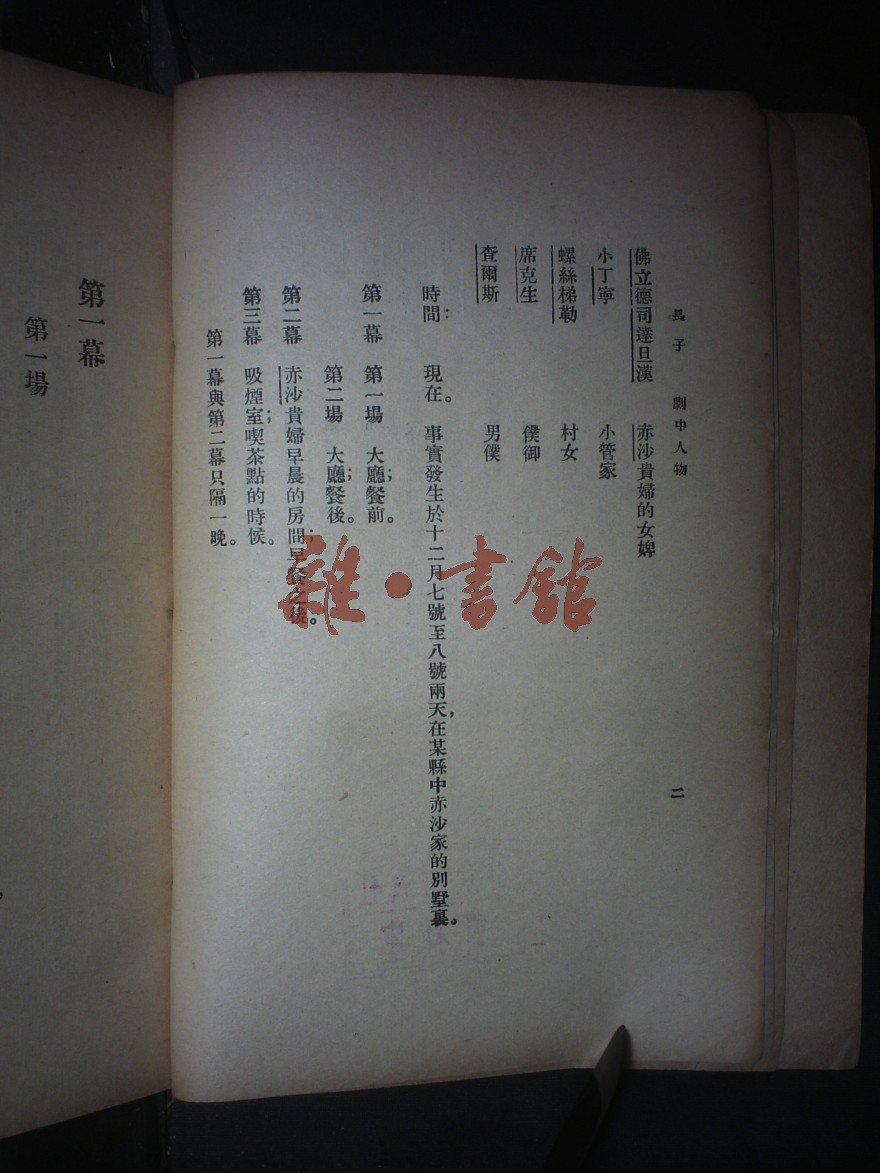 長子　劇中人物　二
佛立德司達旦漢　赤沙貴婦的女婢
小丁寧　小管家
螺絲梯勒　村女
席克生　僕御
查爾斯　男僕
時間：　現在。　事實發生於十二月七號至八號兩天，在某縣中赤沙家的別墅裏。
第一幕　第一場　大廳；餐前。
第二場　大廳；餐後。
第二幕　赤沙貴婦早晨的房間；早餐之後。
第三幕　吸煙室；喫茶點的時候。
第一幕與第二幕只隔一晚。
第一幕
第一場
雜·書館